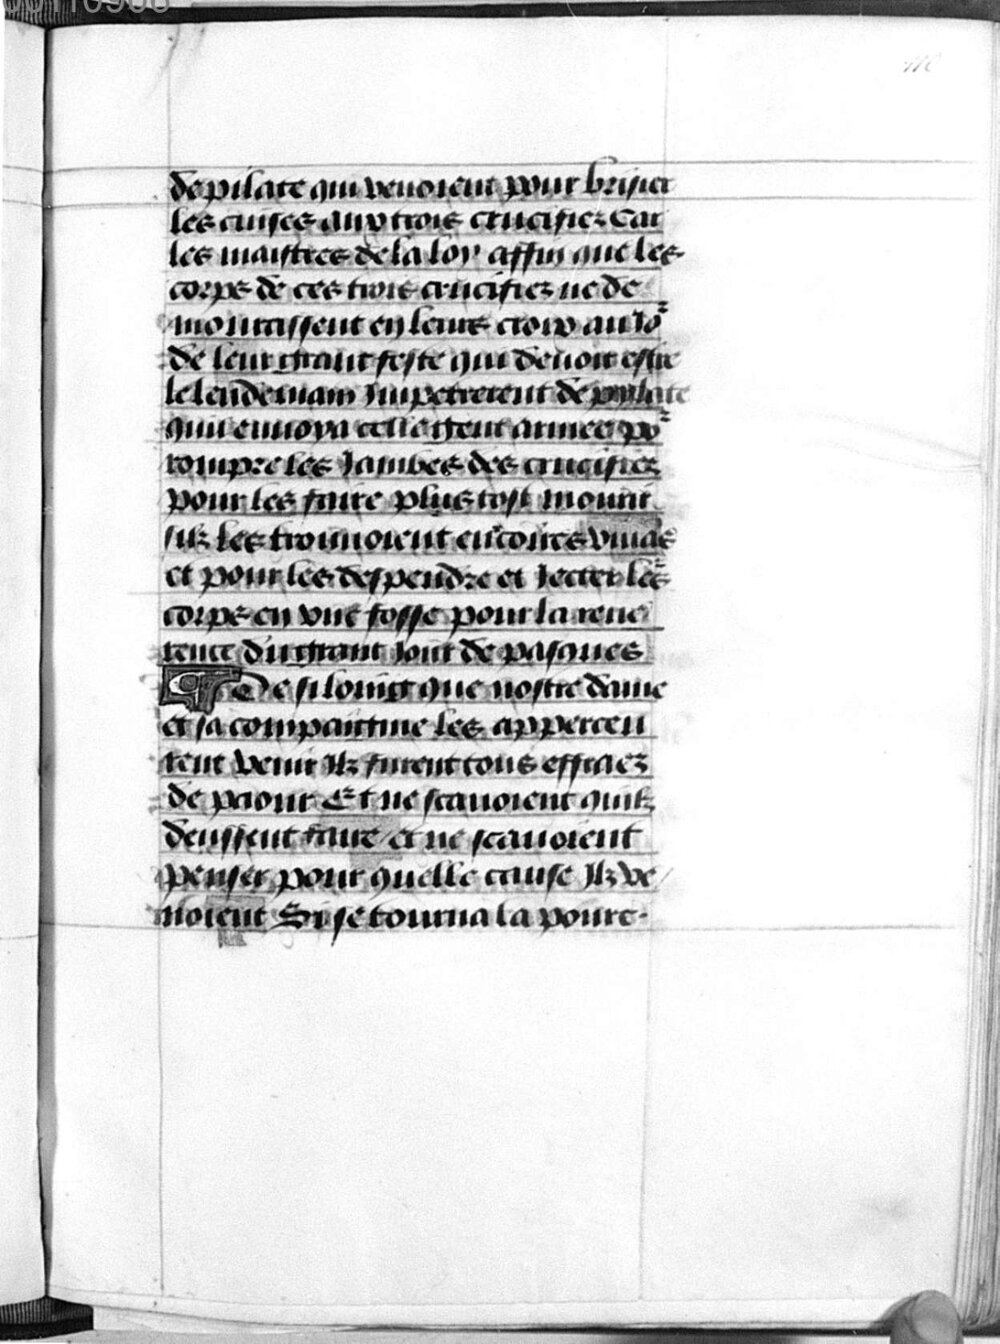 110
de pilate qui venoient pour briser
les cuises aux trois crucifiez Car
les maistres de la loy affin que les
corps de ces trois crucifiez ne de
mourassent en leurs croix au io᷑
de leur grant feste qui devoit estre
le lendemain Impetrerent de pylate
quil envoya celle gent armee po᷑
rompre les Jambes des crucifiez
pour les faire plus tost mourir
silz les trouvoient encores vivās
et pour les despendre et Jecter les
corps en une fosse pour la reve
rence du grant Jour de pasques
¶ De si loing que nostre dame
et sa compaignie les apperceu
rent venir Ilz furent tous effraez
de paour Et ne scavoient quilz
deussent faire et ne scavoient
penser pour quelle cause Ilz ve
noient Si se tourna la povre